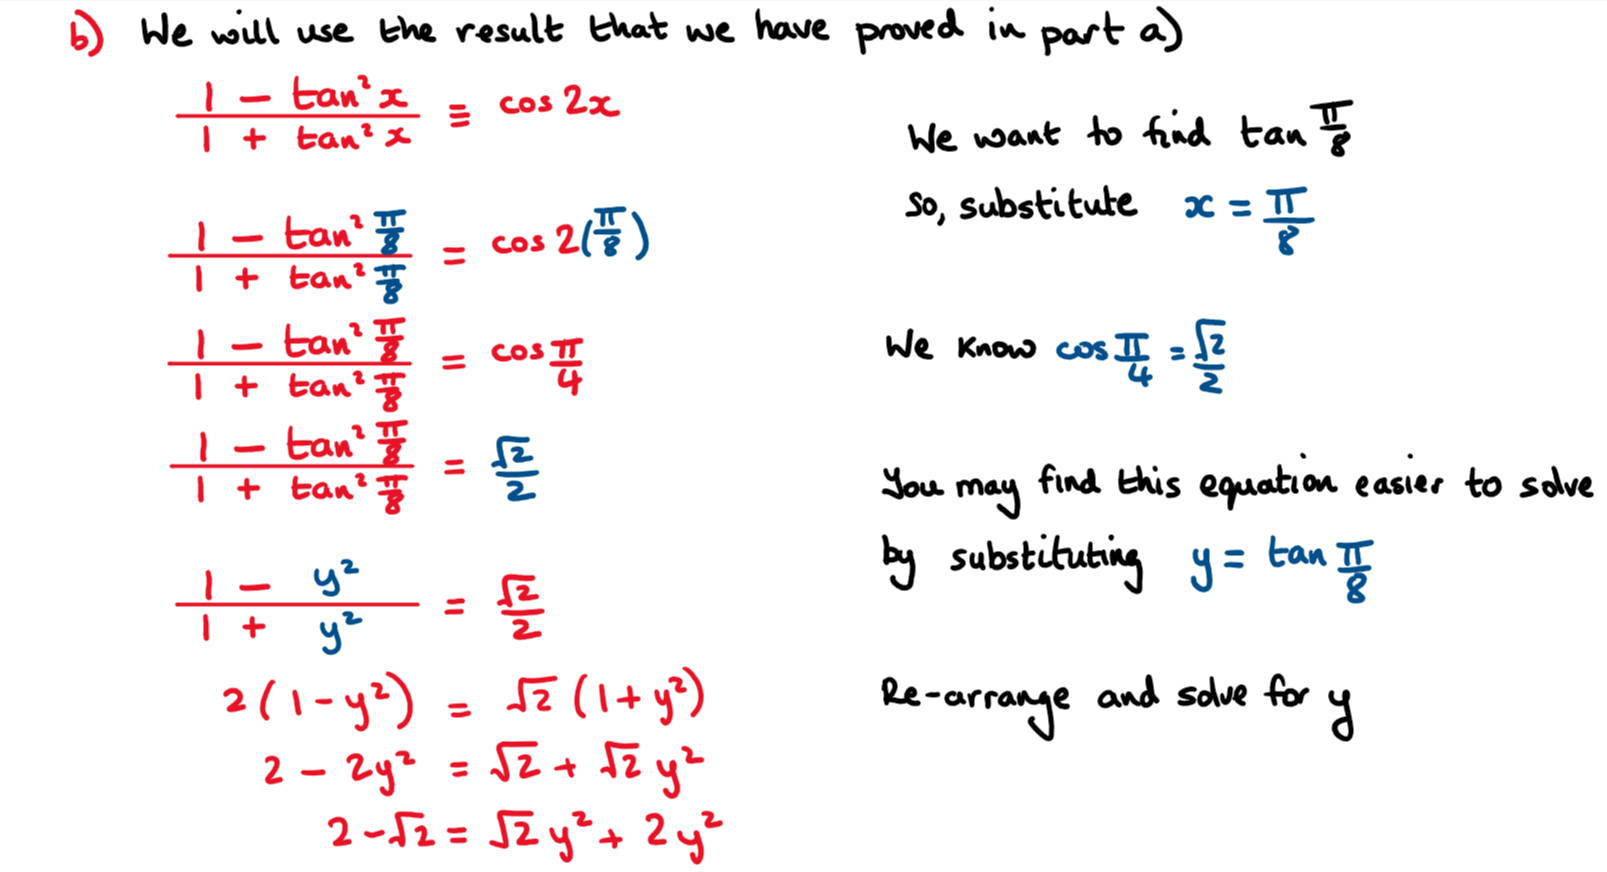 b) We will use the result that we have proved in part a)
(1 - tan²x)/(1 + tan²x) ≡ cos 2x
We want to find tan π/8
So, substitute x = π/8
(1 - tan² π/8)/(1 + tan² π/8) = cos 2(π/8)
(1 - tan² π/8)/(1 + tan² π/8) = cos π/4
We know cos π/4 = √2/2
(1 - tan² π/8)/(1 + tan² π/8) = √2/2
You may find this equation easier to solve
by substituting y = tan π/8
(1 - y²)/(1 + y²) = √2/2
2(1 - y²) = √2(1 + y²)
Re-arrange and solve for y
2 - 2y² = √2 + √2 y²
2 - √2 = √2 y² + 2y²